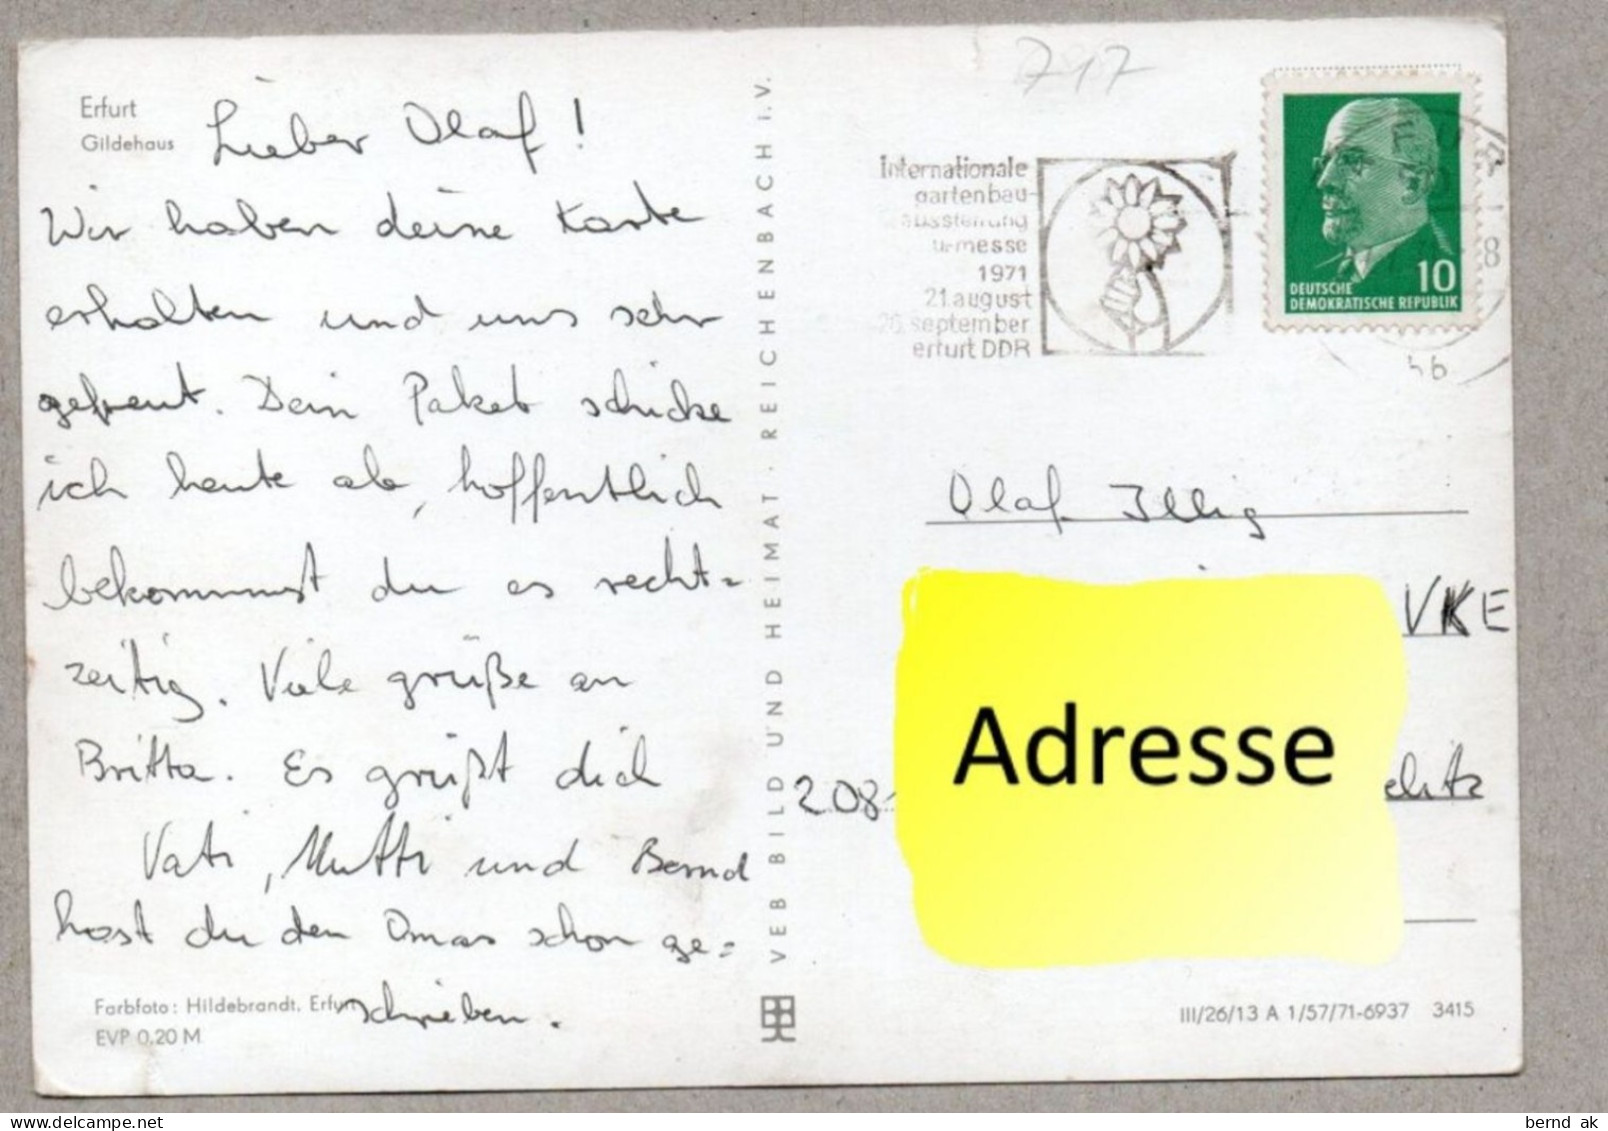 Erfurt
Gildehaus
Lieber Olaf!
Wir haben deine Karte
erhalten und uns sehr
gefreut. Dein Paket schicke
ich heute ab, hoffentlich
bekommst du es recht=
zeitig. Viele grüße an
Britta. Es grüßt dich
Vati, Mutti und Bernd
hast du den Omas schon ge=
schrieben.
Farbfoto: Hildebrandt, Erfurt
EVP 0.20 M
VEB BILD UND HEIMAT · REICHENBACH i.V.
797
Internationale
gartenbau-
ausstellung
u-messe
1971
21.august
26.september
erfurt DDR
10
DEUTSCHE
DEMOKRATISCHE REPUBLIK
8
Olaf Illig
VKE
Adresse
208
elitz
III/26/13 A 1/57/71-6937 3415
bernd ak